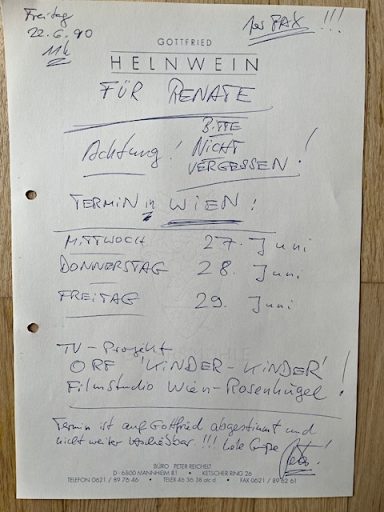 Freitag
22.6.90
per FAX !!!
GOTTFRIED
HELNWEIN
FÜR RENATE
Achtung! BITTE NICHT VERGESSEN!
TERMIN in WIEN!
MITTWOCH 27. Juni
DONNERSTAG 28. Juni
FREITAG 29. Juni
TV-Projekt
ORF 'KINDER-KINDER' !
Filmstudio Wien-Rosenhügel!
Termin ist auf Gottfried abgestimmt und
nicht weiter verschiebbar.!!! Liebe Grüße
BÜRO PETER REICHELT
D-6800 MANNHEIM 81 • KETSCHER RING 26
TELEFON 0621 / 89 76 46 • TELEX 46 36 38 atc d • FAX 0621 / 89 82 61